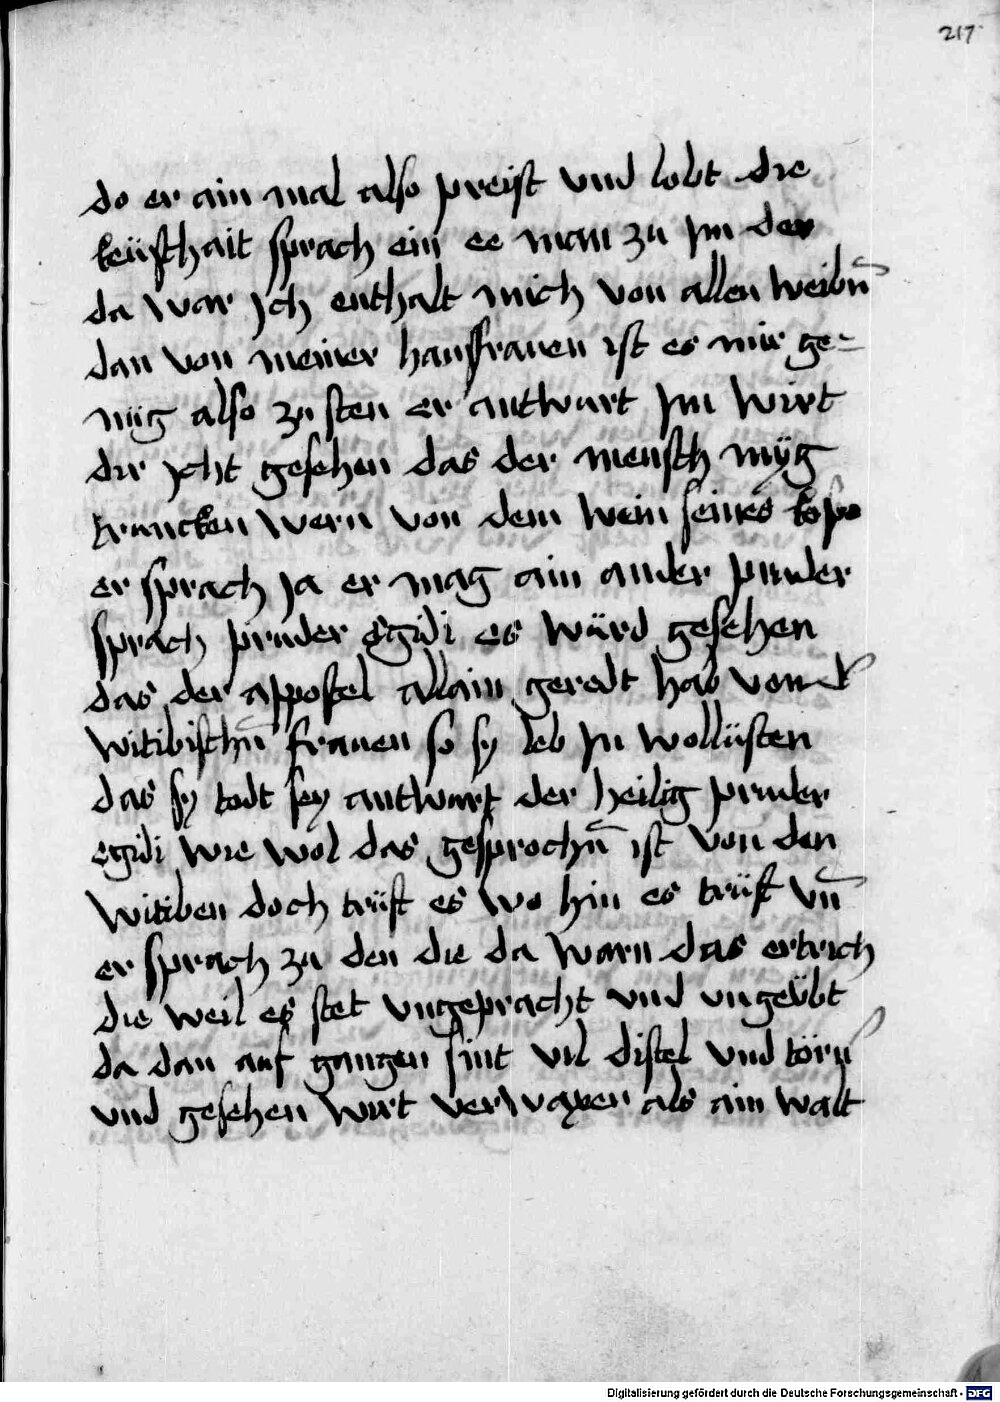 217
do er ain mal also preist vnd lobt die
keüschait sprach ein ee man zu jm der
da war jch enthalt mich von allen weibn̄
dan von meiner hausfrauen ist es mir ge-
nüg also zu sten er antwurt jm wirt
dir jcht gesehen das der mensch müg
truncken wern von dem wein seines
er sprach ja er mag ain ander pruder
sprach pruder egidi es würd gesehen
das der appostel allain geredt hab von d'
witibischn̄ frauen so sy leb jn wollüsten
das sy todt sey antwurt der heilig pruder
egidi wie wol das gesprochn̄ ist von den
witiben doch trüft es wo hin es trüft vn̄
er sprach zu den die da warn das ertrich
die weil es stet vngepracht vnd vngeübt
da dan auf gangen sint vil distel vnd törn̄
vnd gesehen wirt verwaxen als ain walt
Digitalisierung gefördert durch die Deutsche Forschungsgemeinschaft - DFG